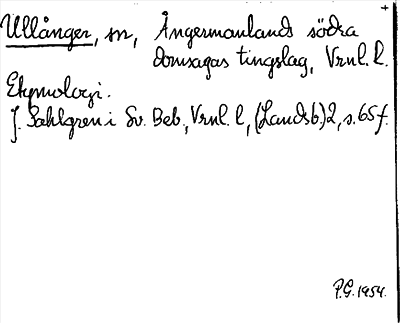 Ullånger, sn, Ångermanlands södra
domsagas tingslag, Vrnl. l.
Etymologi.
J. Sahlgren i Sv. Beb., Vrnl. l, (Landsb.) 2, s. 65 f.
P.G. 1954.